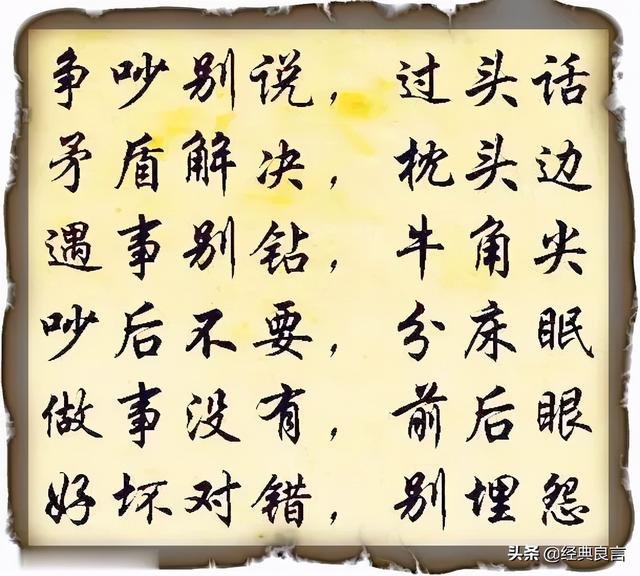 争吵别说，过头话
矛盾解决，枕头边
遇事别钻，牛角尖
吵后不要，分床眠
做事没有，前后眼
好坏对错，别埋怨
头条 @经典良言